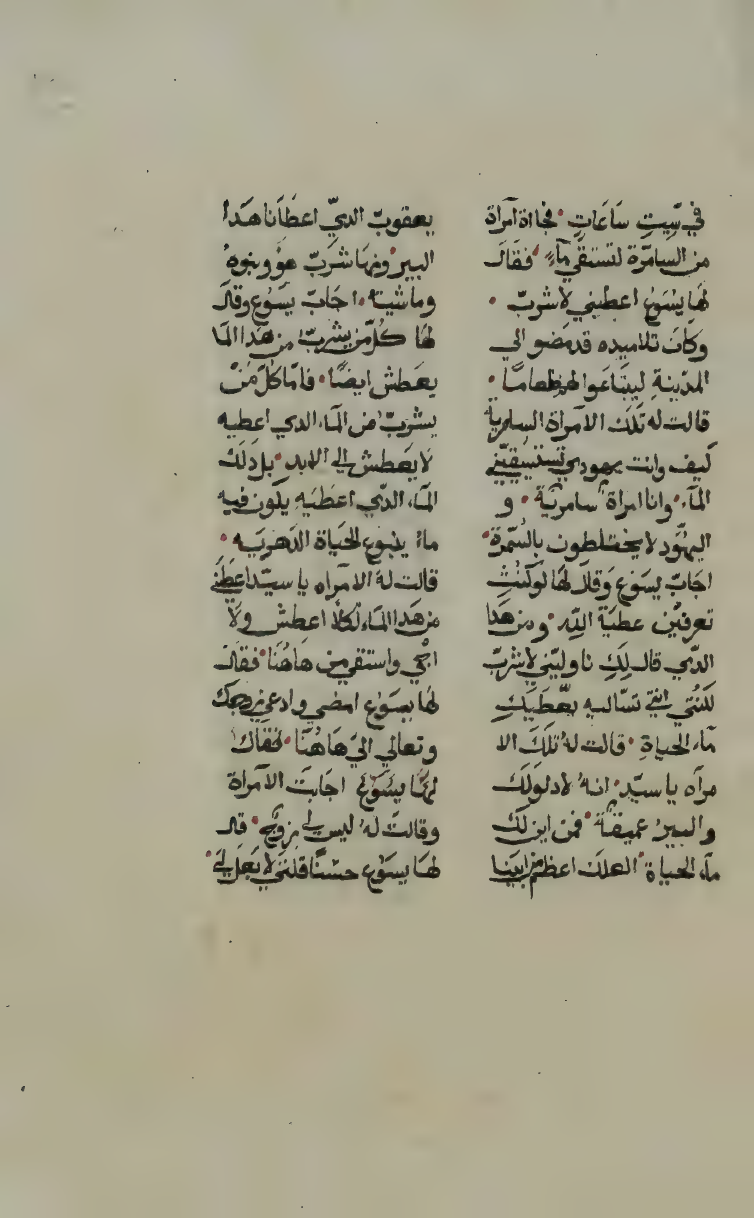 في سِتِّ سَاعَاتٍ فجااة امرَاة
من السامرّة لتستقي مآءٍ فقَالَ
لهَا يَسُوع اعطيني لاشربّ
وكانَ تلاميده قد مَضو الي
المدّينةِ ليبتَاعَوا لهم طعامًا
قالت له تلَك الامرَاة السامرية
كيف وانت يهودي تستسقيني
المآء وانا امراة سامريَة و
اليهُود لا يختلطون بالسَّمرة
اجابَ يسَوَع وَقالَ لهَا لوَ كنتِ
تعرفيَن عطيَة اللّه ومن هَدا
الدّي قال لَكِ ناوليّني لاشربّ
لكنتي انتي تسَاليه يعَطيَكِ
مآء الحياةِ قالت لهُ تلكَ الا
مرآه يا سيّد انهُ لا دلو لكَ
والبير عميقَة فمن اين لكَ
مآء الحياة العلك اعظم من ابينا
يعقوبّ الديّ اعطَانا هَدا
البير ومنهَا شربّ هو وبنوه
وماشيته اجابّ يسَوُع وقال
لهَا كلّ من يشربّ من هَدا الما
يعَطش ايضًا فامّا كلّ منْ
يشربّ من المآء الدي اعطيه
لا يعَطش الي الابد بل دلك
المآء الدّي اعَطيَهِ يكون فيه
ماءُ ينبوع لحيَاة الدَهريَه
قالت لهُ الامرآه يا سيّد اعطني
من هَدا المآء لكلا اعطش ولا
اجي واستقي من هَاهُنا فقال
لهَا يسَوُع امضي وادعي زوجك
وتعالي اليّ هَاهُنَا فقال
لهَا يسَوُع اجابَت الامرَاة
وقالت لهُ ليس لي زوج قال
لهَا يسَوُع حسْنًا قلتي لا بعل لي